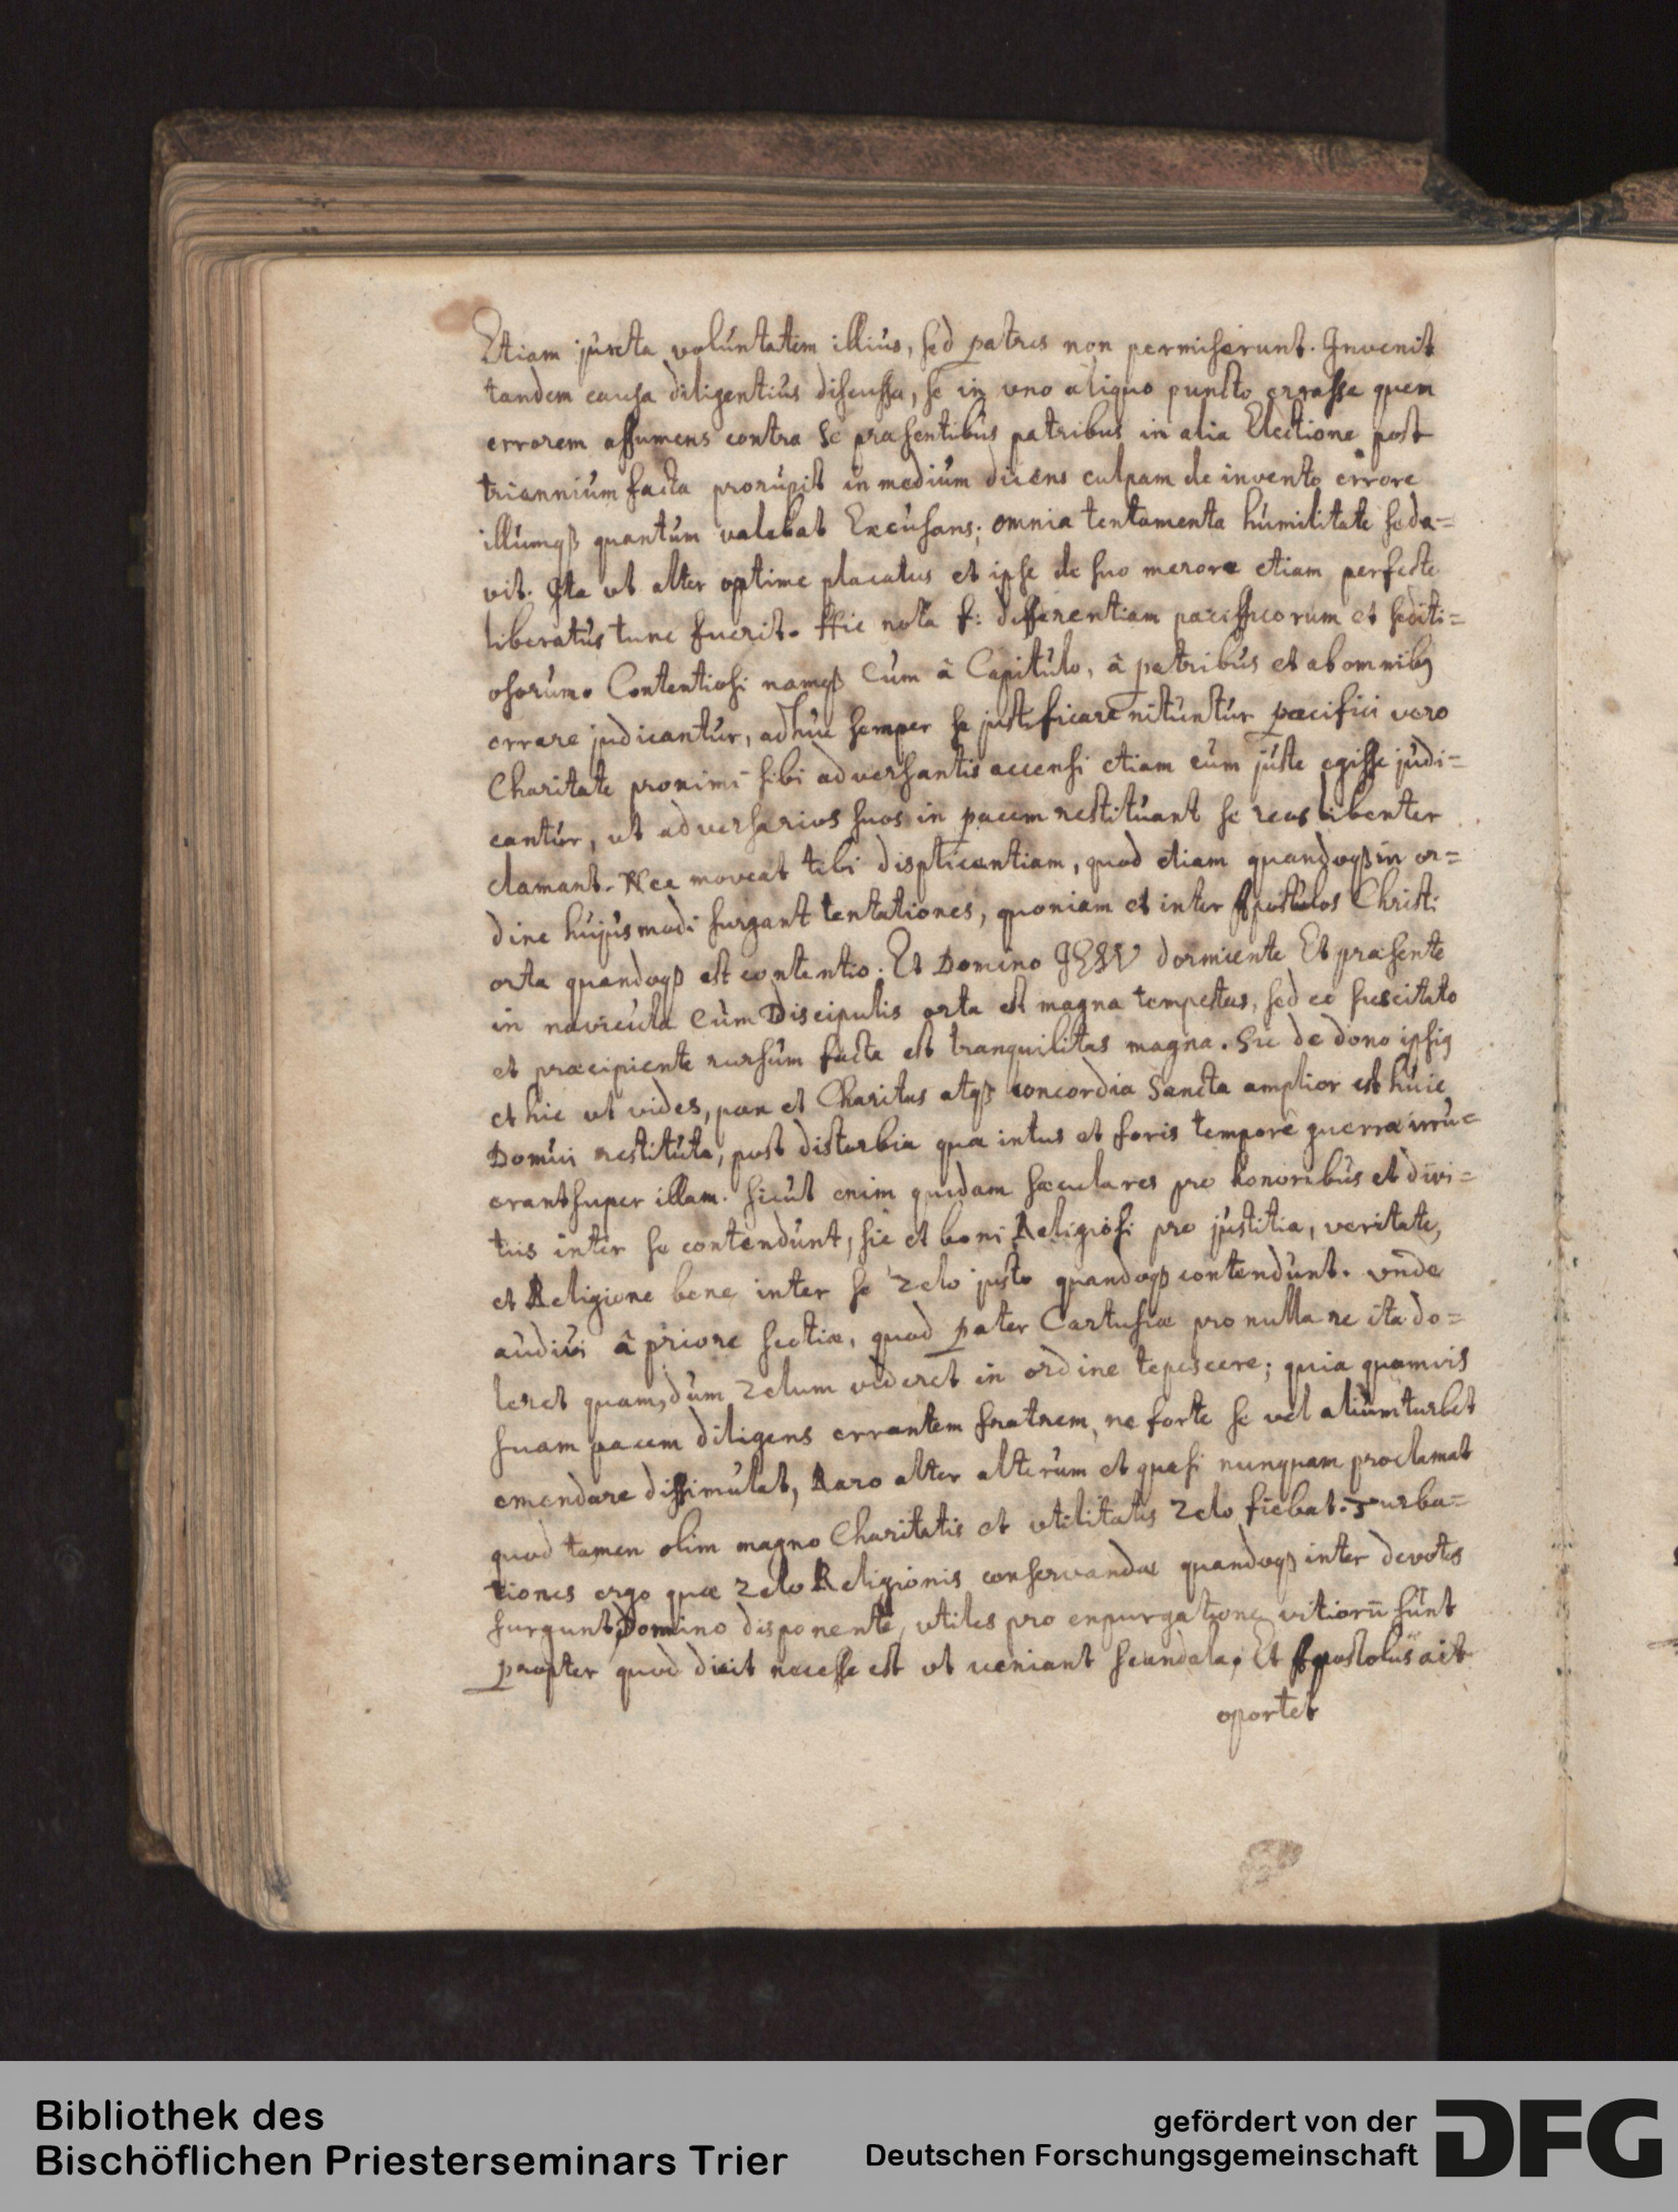 Etiam juxta volúntatem illiús, sed patres non permiserunt. Invenit
tandem causa diligentiús discussa, se in vno aliquo puncto errasse quem
errorem assumens contra se præsentibús patribus in alia Electione post
trienniúm facta prorúpit in mediúm dicens culpam de invento errore
illúmqß quantúm valebat Excúsans; omnia tentamenta húmilitate seda=
vit. Ita vt alter optime placatus et ipse de suo merore etiam perfecte
liberatús tunc fuerit. Hic nota f: differentiam pacificorum et sediti=
osorúm. Contentiosi namqß Cúm â Capitúlo, â patribús et ab omnibq
errare judicantúr, adhúc semper se justificare nitúntúr pacifici vero
Charitate proximi sibi adversantis accensi etiam cúm júste egisse júdi=
cantúr, vt adversarios suos in pacem restitúant se reos libenter
clamant. Nec moveat tibi displicentiam, quod etiam quandoqß in or=
dine hújúsmodi surgant tentationes, quoniam et inter Apostolos Christi
orta quandoqß est contentio. Et Domino IESV dormiente Et præsente
in navicúla Cúm Discipulis orta est magna tempestas, sed eo suscitato
et præcipiente rursúm facta est tranquilitas magna. Sic de dono ipsiq
et hic vt vides, pax et Charitas atqß concordia Sancta amplior est húic
Domúi restitúta, post disturbia quæ intus et foris tempore guerræ irrú=
erant super illam. sicút enim quidam sæculares pro honoribús et divi=
tiis inter se contendúnt, sic et boni Religiosi pro jústitia, veritate,
et Religione bene inter se zelo jústo quandoqß contendúnt. vnde
aúdivi â priore scotiæ, quod pater Cartusiæ pro nulla re ita do=
leret quam, dúm zelum videret in ordine tepescere; quia quamvis
suam pacem diligens errantem fratrem, ne forte se vel aliúm turbet
emendare dissimúlat, Raro alter alterúm et quasi nunquam proclamat
quod tamen olim magno Charitatis et vtilitatis zelo fiebat. Turba=
tiones ergo quæ zelo Religionis conservandæ quandoqß inter devotos
surgunt, Domino disponente, vtiles pro expurgatione vitiorū súnt
propter quod dicit necesse est vt veniant scandala. Et Apostolús ait
oportet
Bibliothek des
Bischöflichen Priesterseminars Trier
gefördert von der
Deutschen Forschungsgemeinschaft
DFG